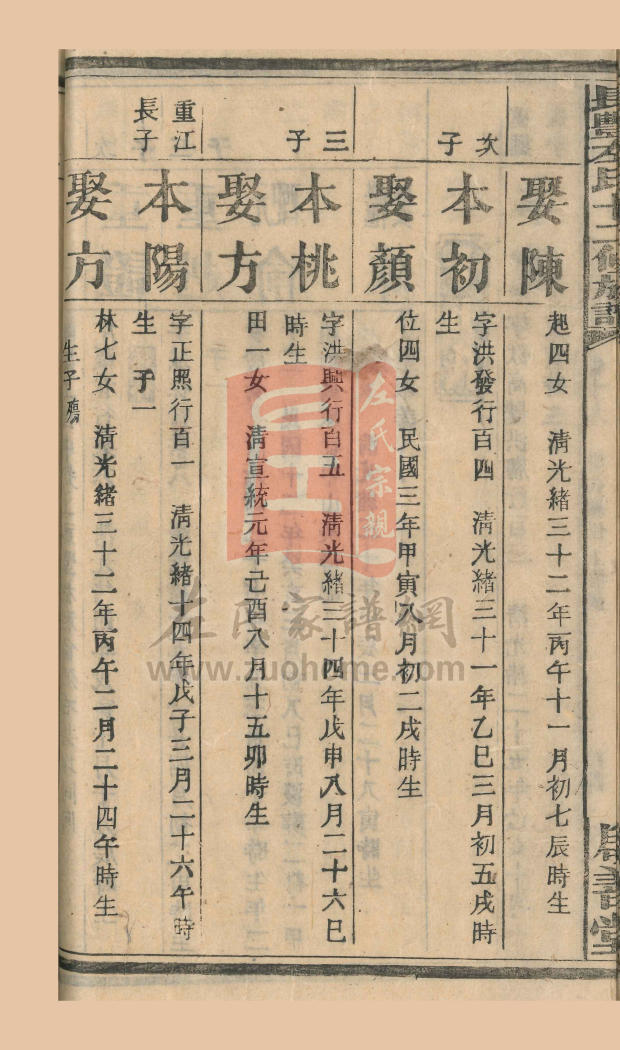 左氏十二修族譜
娶陳
起四女 清光緒三十二年丙午十一月初七辰時生
次子
本初
字洪發行百四 清光緒三十一年乙巳三月初五戌時
生
娶顏
位四女 民國三年甲寅八月初二戌時生
三子
本桃
字洪興行百五 清光緒三十四年戊申八月二十六巳
時生
娶方
田一女 清宣統元年己酉八月十五卯時生
重江長子
本陽
字正熙行百一 清光緒十四年戊子三月二十六午時
生 子一
娶方
林七女 清光緒三十二年丙午二月二十四午時生
生子殤
左氏宗親
左氏家譜網
www.zuohome.com